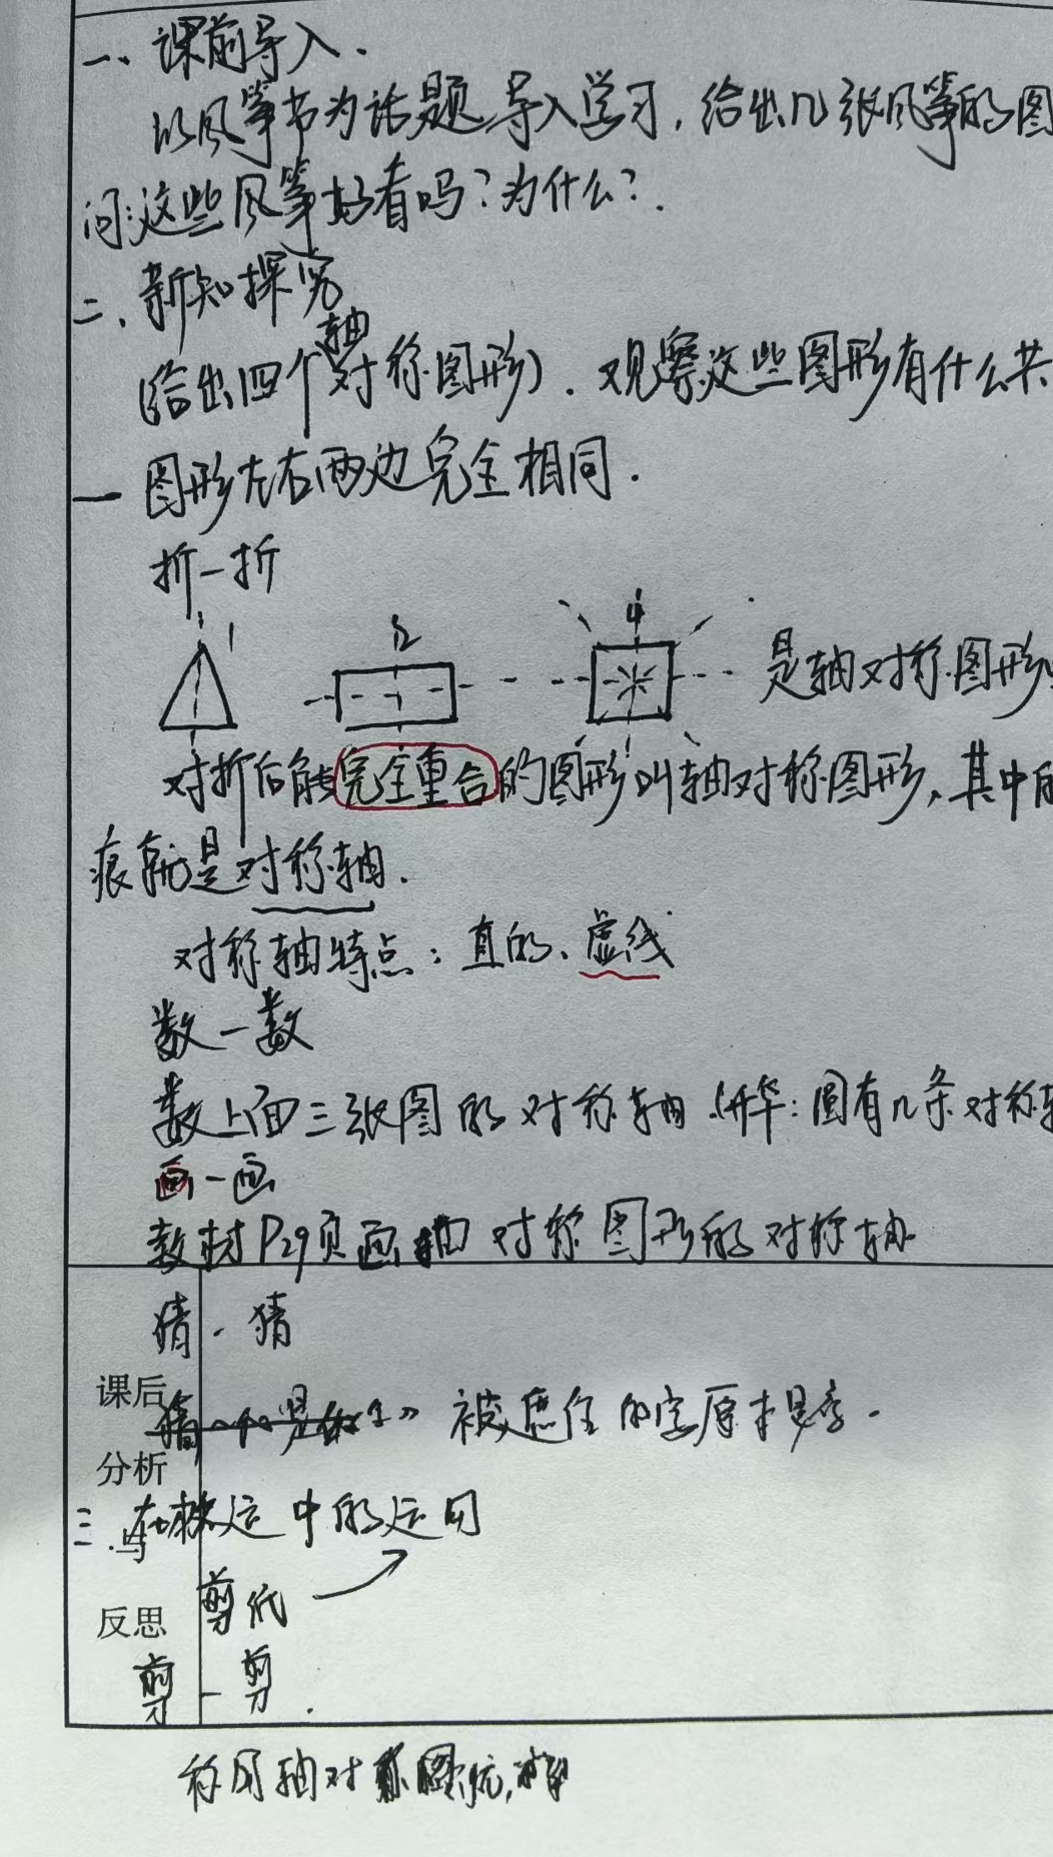 一、课前导入.
以风筝节为话题导入学习，给出几张风筝的图
问:这些风筝好看吗？为什么？.
二、新知探究
(给出四个轴对称图形）.观察这些图形有什么共
一 图形左右两边完全相同.
折一折
1 2 4 是轴对称图形
对折后能完全重合的图形叫轴对称图形，其中的
痕就是对称轴.
对称轴特点：直的、虚线
数一数
数上面三张图的对称轴.(升华：圆有几条对称轴
画一画
教材P29页画轴对称图形的对称轴
猜一猜
课后
猜 被遮住的字原本是
分析
三. 中的运用
剪纸
反思
剪一剪.
轴对